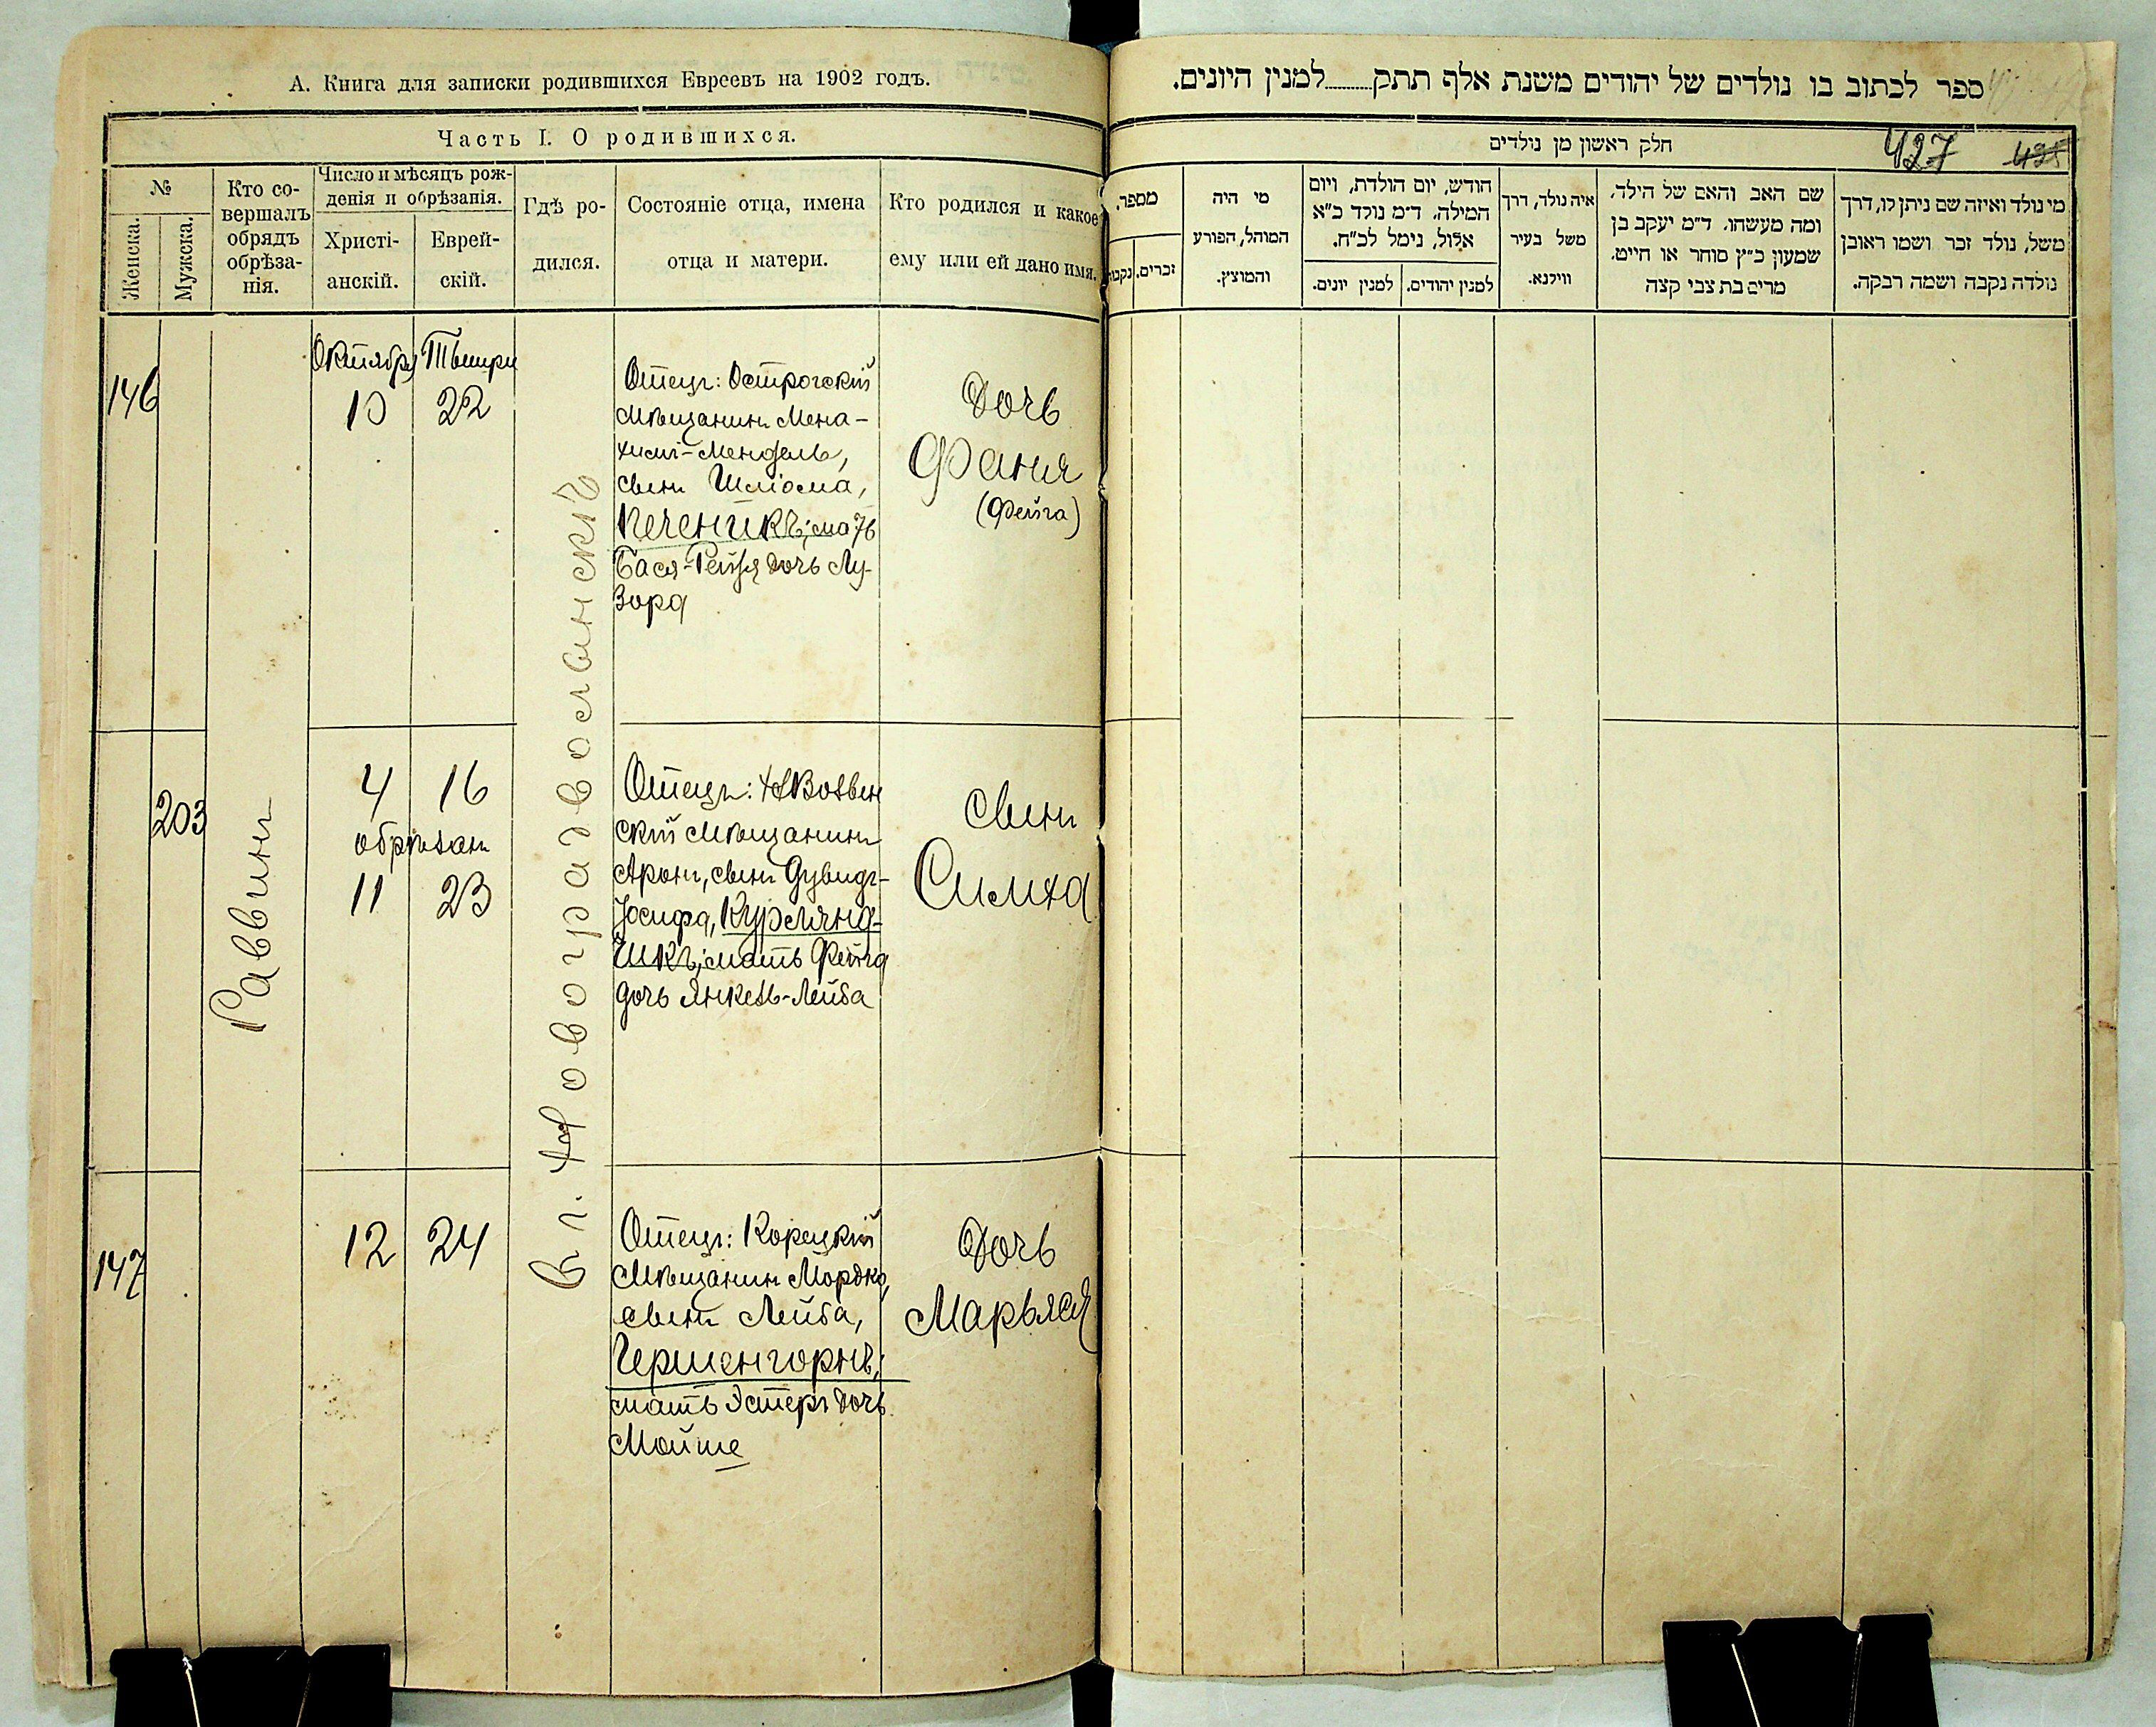 А. Книга для записки родившихся Евреевъ на 1902 годъ.
Часть I. О родившихся.
№
Женска.
Мужска.
Кто со-
вершалъ
обрядъ
обрѣза-
нія.
Число и мѣсяцъ рож-
денія и обрѣзанія.
Христі-
анскій.
Еврей-
скій.
Гдѣ ро-
дился.
Состояніе отца, имена
отца и матери.
Кто родился и какое
ему или ей дано имя.
146
Октября Тышри
10 22
Отецъ: Острогскій
мѣщанинъ Мена-
химъ-Мендель,
сынъ Шліома,
Печеникъ; мать
Бася-Рейзя дочь Лу-
зора
Дочь
Фаня
(Фейга)
Раввинъ
в г. Новоградволынскѣ
203
4 16
обрѣзанъ
11 23
Отецъ:
скій мѣщанинъ
Аронъ, сынъ Дувидъ-
Іосифа, Курлянд-
чикъ; мать Фейга
дочь Янкель-Лейба
сынъ
Симха
147
12 24
Отецъ: Корецкій
мѣщанинъ Мордко,
сынъ Лейба,
Гершенгорнъ;
мать Эстеръ дочь
Мойше
Дочь
Марьяся
ספר לכתוב בו נולדים של יהודים משנת אלף תתק......למנין היונים.
חלק ראשון מן נולדים
427 425
מספר.
זכרים.
נקבות
מי היה
המוהל, הפורע
והמוצץ.
הודש, יום הולדת, ויום
המילה. ד״מ נולד כ״א
אלול, נימל לכ״ח.
למנין יונים.
למנין יהודים.
איה נולד, דרך
משל בעיר
ווילנא.
שם האב והאם של הילד.
ומה מעשהו. ד״מ יעקב בן
שמעון כ״ץ סוחר או חייט.
מרים בת צבי קצה
מי נולד ואיזה שם ניתן לו, דרך
משל, נולד זכר ושמו ראובן
נולדה נקבה ושמה רבקה.